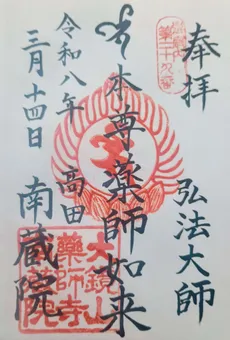 奉拝
弘法大師
本尊薬師如来
高田
南蔵院
令和八年
三月十四日
大鏡山
薬師寺